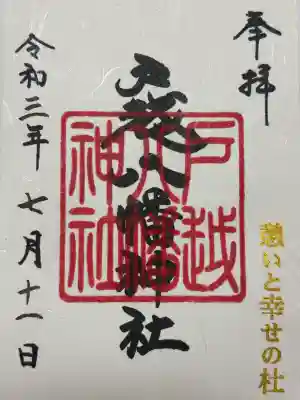 奉拝
戸越八幡神社
戸越八幡神社
令和三年 七月十一日
憩いと幸せの杜